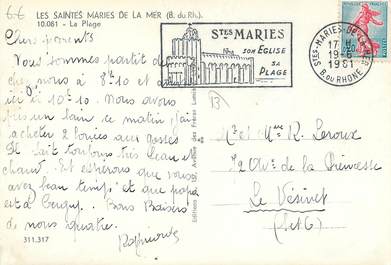 6-6
LES SAINTES MARIES DE LA MER (B. du Rh.)
10.061 - La Plage
Chers parents
Nous sommes partit de
chez nous à 8h10 et
ici à 10h10. Nous avons
pris un bain ce matin j'ai
acheter 2 bouées aux gosses
Il fait toujours très beau et
chaud. Et esperons que vous
avez beau temps et que papa
est à Cergy. Bons Baisers
de nous quatre.
Raymonde
311.317
STES MARIES
SON EGLISE
SA
PLAGE
STES-MARIES-DE-LA-MER
17 H
19-6
1961
B. DU RHONE
Mr et Mme R. Leroux
72 Av. de la Princesse
Le Vésinet
(S et O)